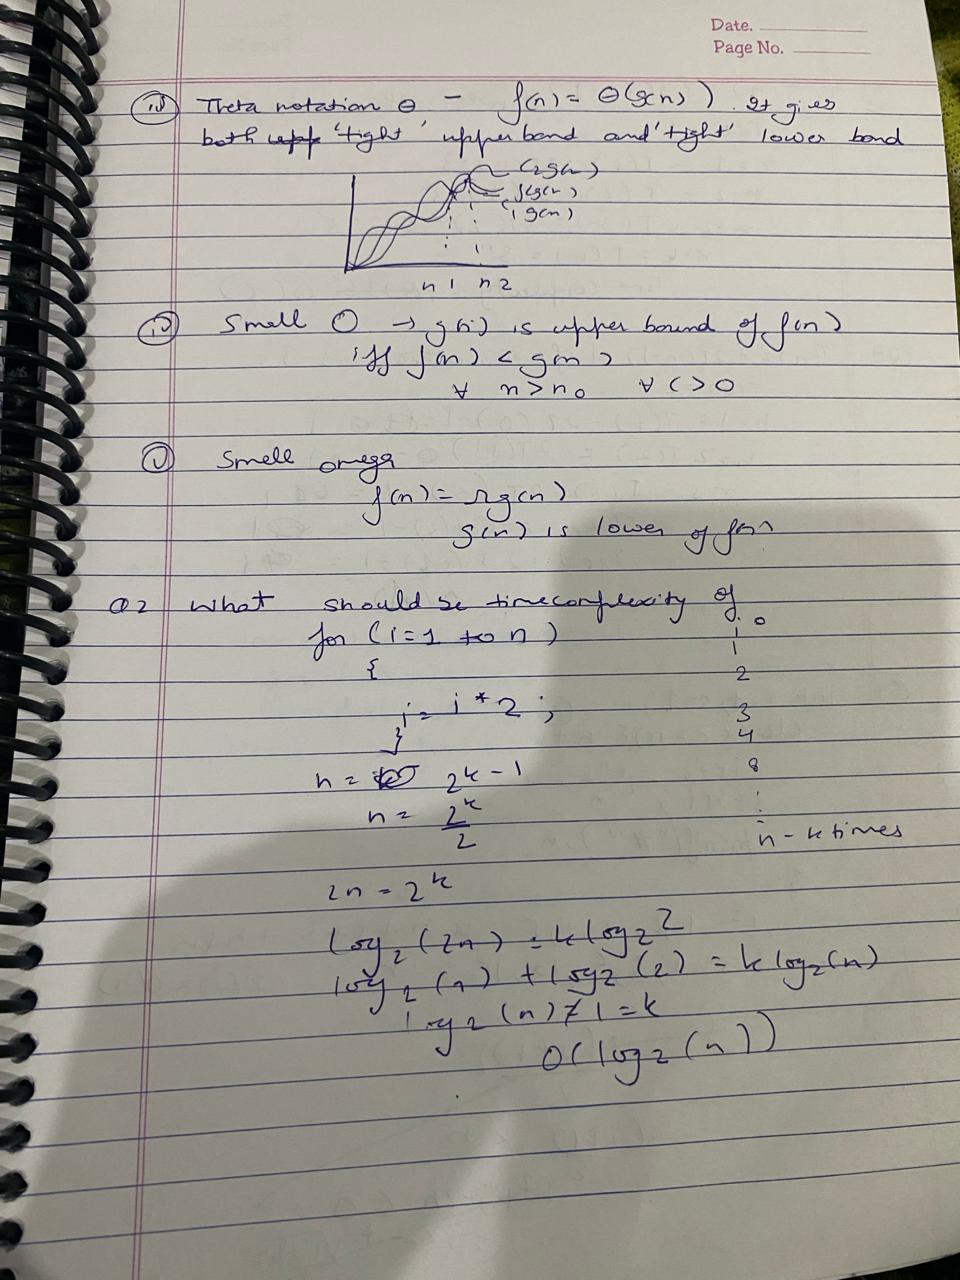 Date.
Page No.
(iii) Theta notation θ - f(n) = θ(g(n)). It gives
both 'tight' upper bond and 'tight' lower bond
C2g(n)
f(g(n)
C1g(n)
n1 n2
(iv) Small O → g(n) is upper bound of f(n)
iff f(n) < g(n)
∀ n > n₀ ∀ C > 0
(v) Smell omega
f(n) = Ωg(n)
g(n) is lower of f(n)
Q2 What should be timecomplexity of
for (i=1 to n)
{
i = i * 2 ;
}
i
0
1
2
3
4
8
⋮
n - k times
n = 2^k-1
n = 2^k/2
2n = 2^k
log₂(2n) = k log₂2
log₂(n) + log₂(2) = k log₂(n)
log₂(n) + 1 = k
O(log₂(n))